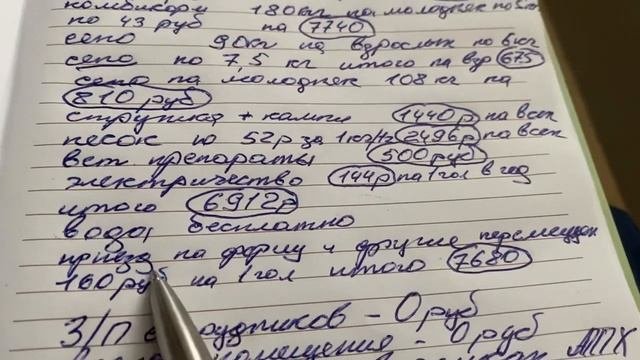 комбикорм 180кг на молодняк по 5кг
по 43 руб на 7740
сено 90кг на взрослых по 6кг
сено по 7,5 кг итого на взр 675
сено на молодняк 108 кг на
810 руб
стружка + камни 1440р на всех
песок 10 52р за 1кг 2496р на всех
вет препараты 500 руб
электричество 144р на 1 гол в год
итого 6912р
вода бесплатно
приезд на ферму и другие перемещен
160 руб на 1 гол итого 7680
З/П сотрудников – 0 руб
помещение – 0 руб
АППХ